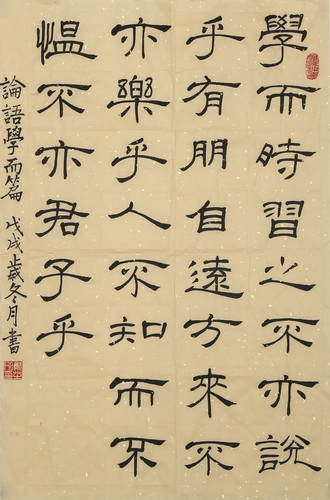 學而時習之不亦說
乎有朋自遠方來不
亦樂乎人不知而不
愠不亦君子乎
論語學而篇 戊戌歲冬月書